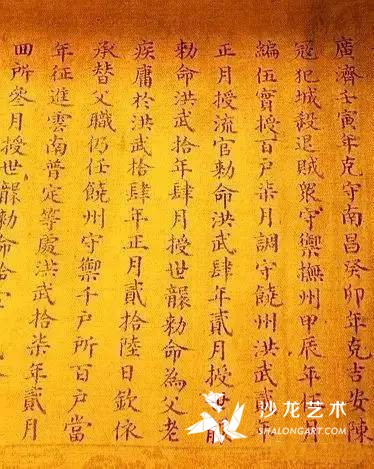 廣濟壬寅年克守南昌癸卯年克吉安陳
冦犯城殺退賊衆守禦撫州甲辰年月
編伍實授百戶柒月調守饒州洪武
正月授流官勅命洪武肆年貳月授世襲
勅命洪武拾年肆月授世襲勅命為父老
疾庸於洪武拾肆年正月貳拾陸日欽依
承替父職仍任饒州守禦千戶所百戶當
年征進雲南普定等處洪武拾柒年貳月
囬所叁月授世襲勅命
沙龙艺术
SHALONGART.COM